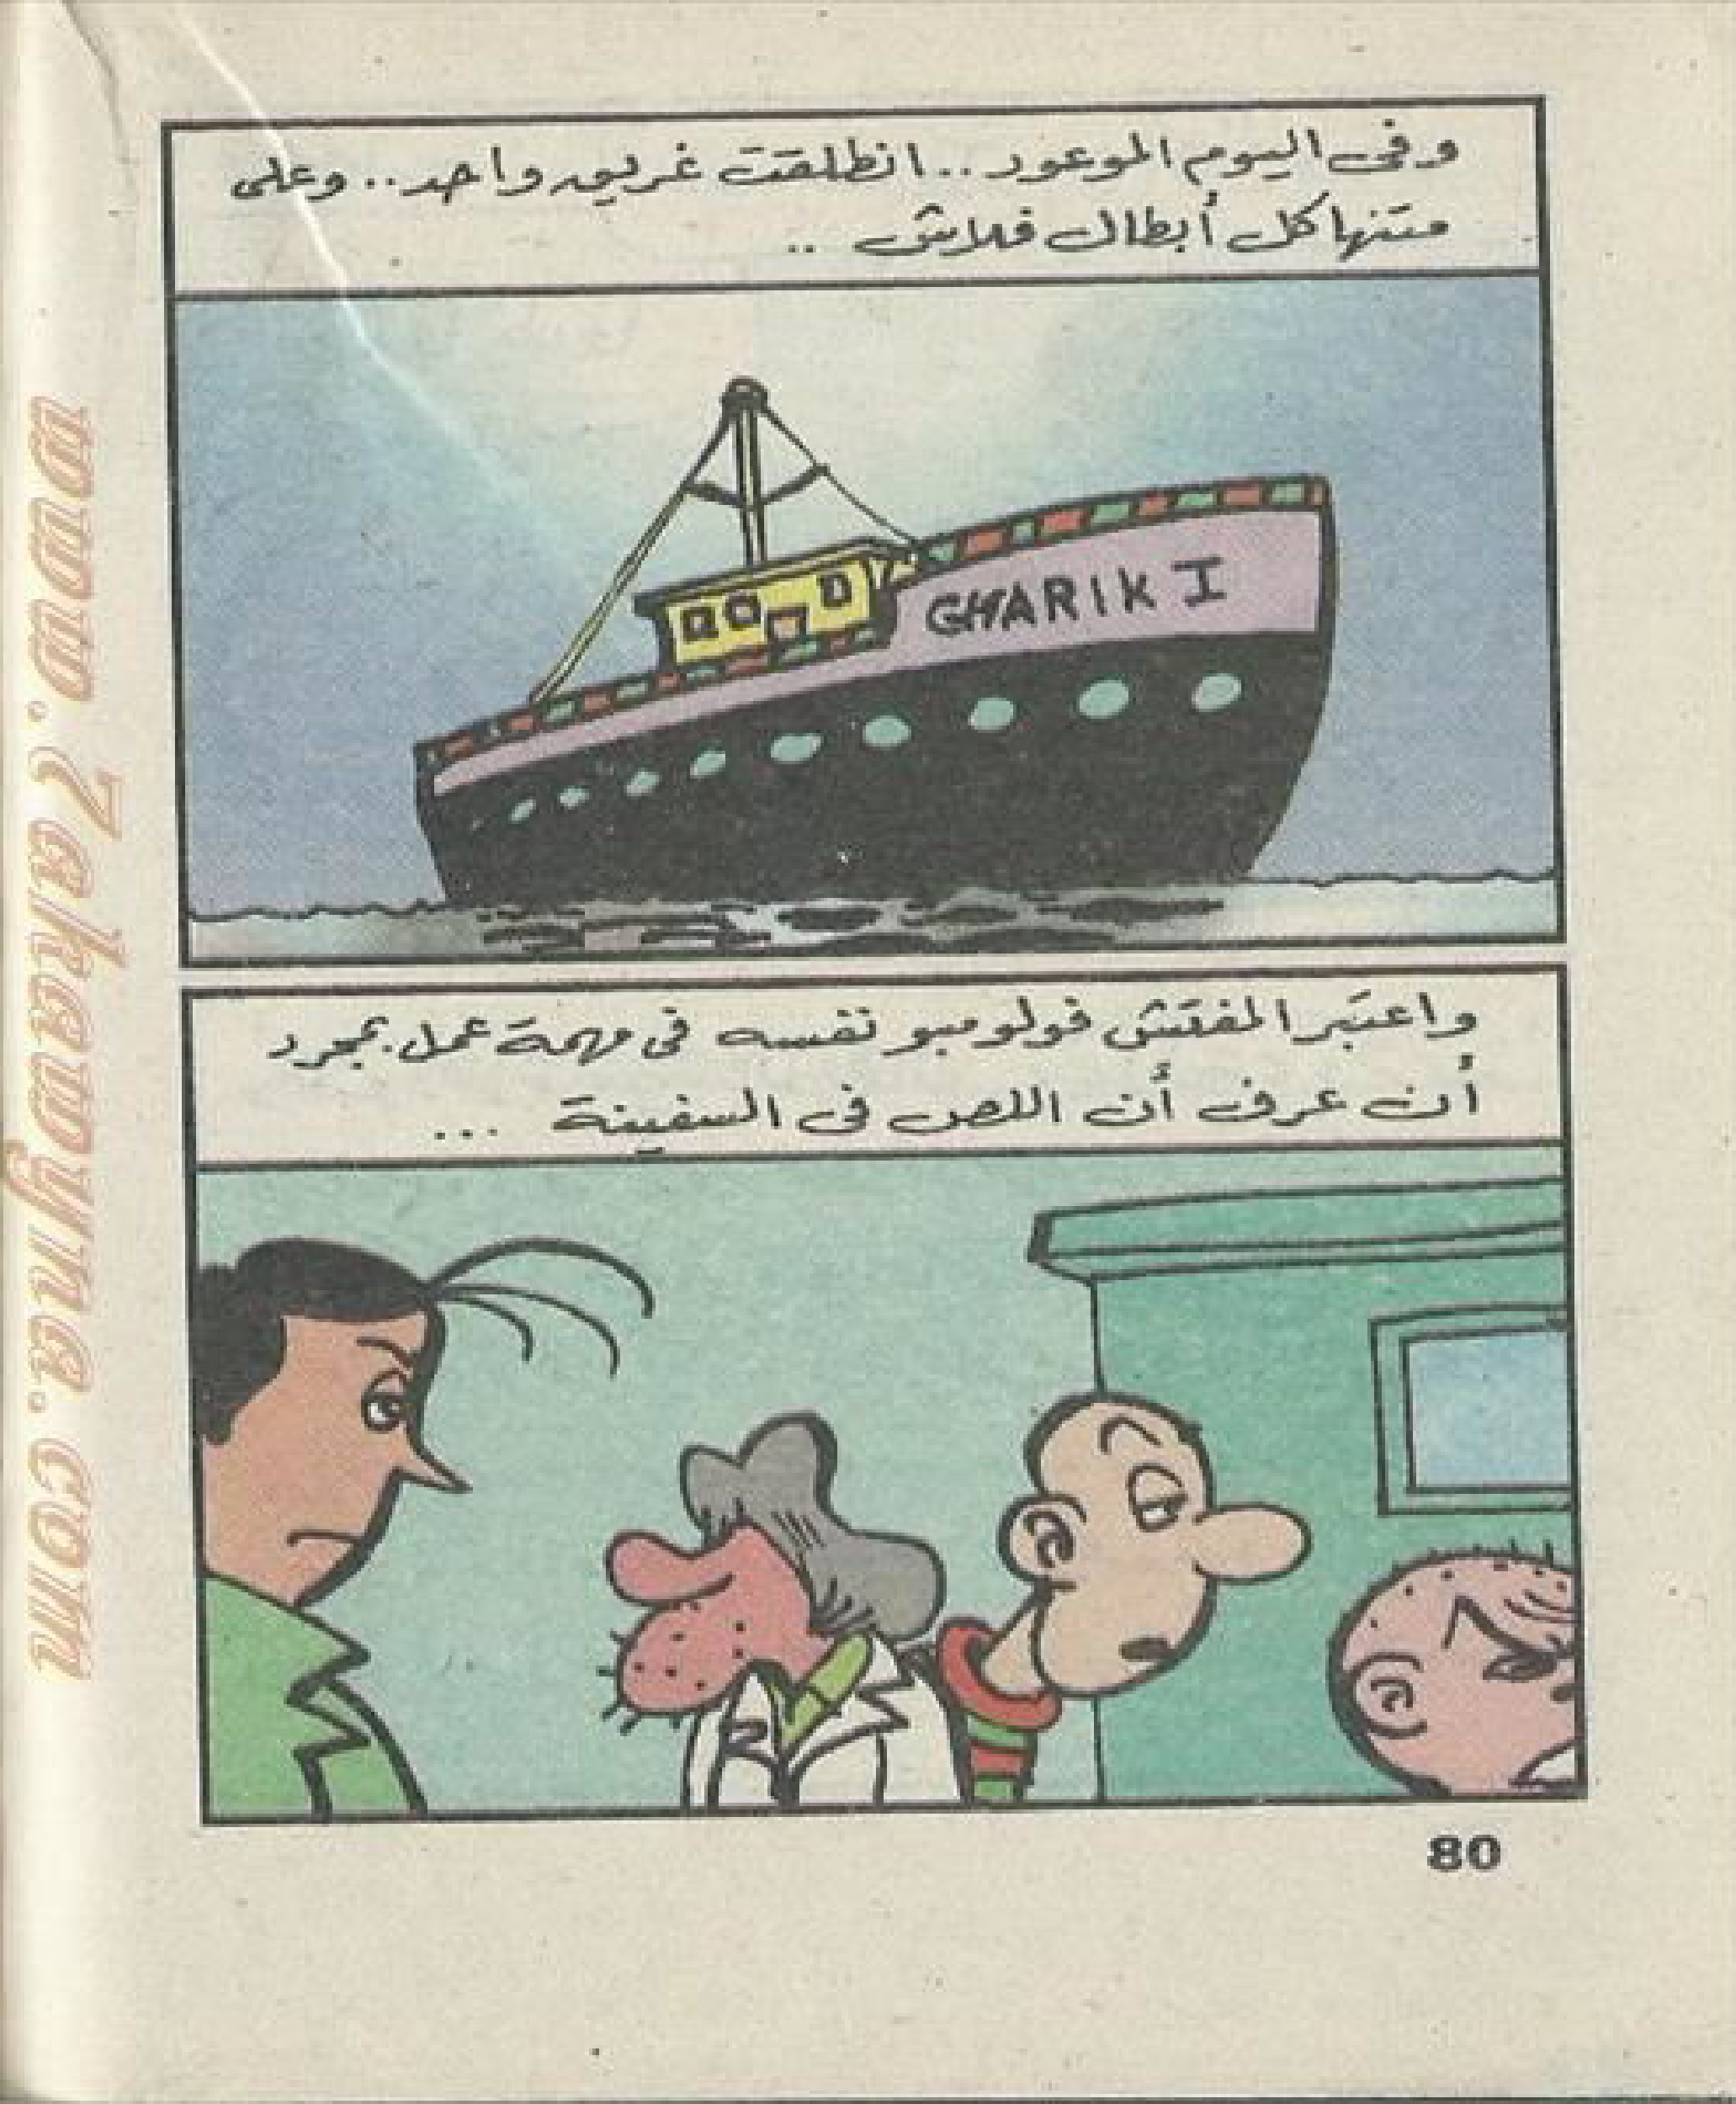 وفى اليوم الموعود.. انطلقت غريق واحد.. وعلى
متنها كل أبطال فلاش ..
GHARIK I
واعتبر المفتش فولومبو نفسه فى مهمة عمل بمجرد
أن عرف أن اللص فى السفينة ...
80
www.7akawyna.com